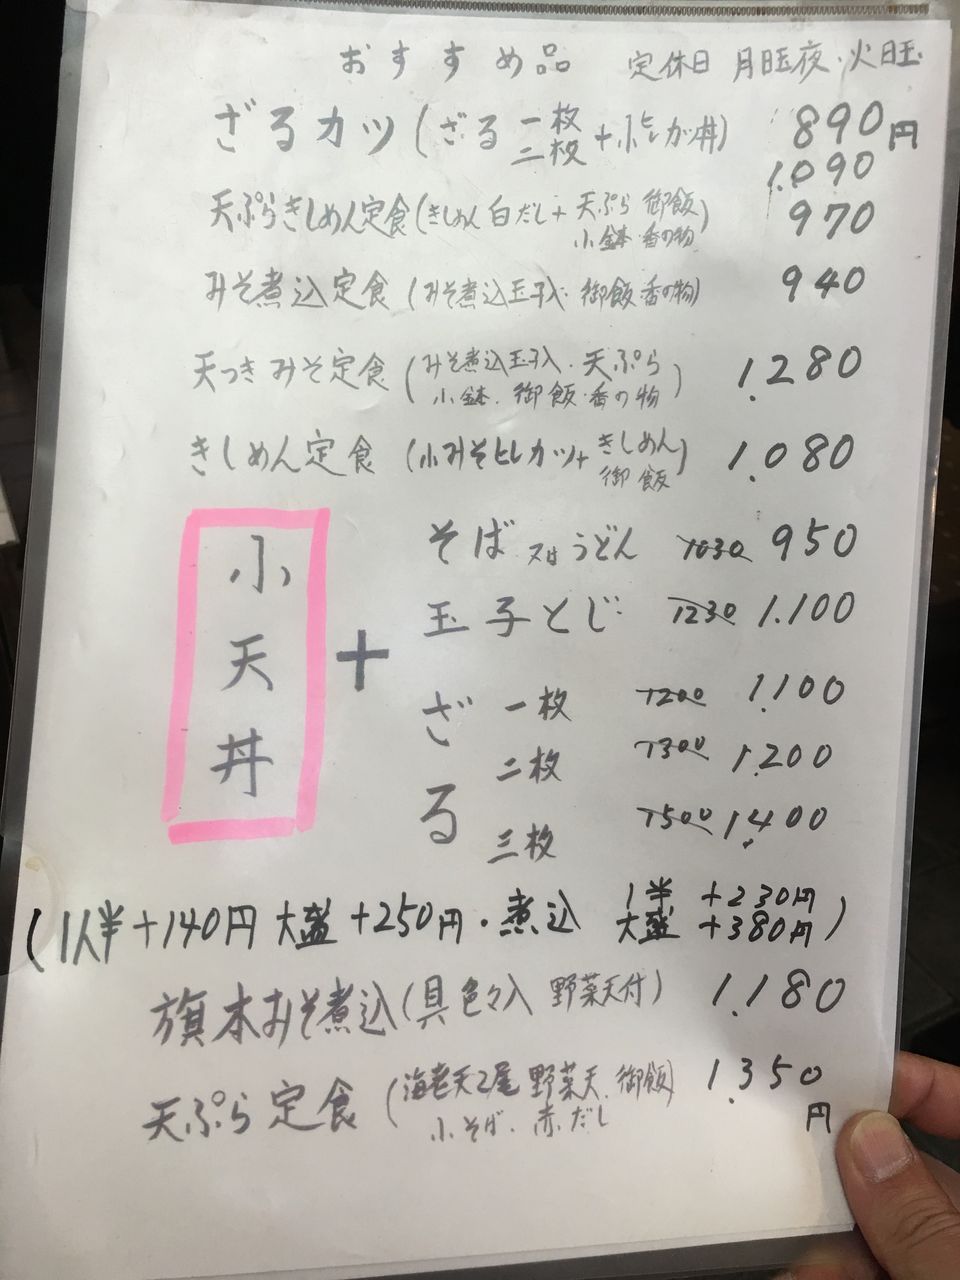 おすすめ品 定休日 月曜夜・火曜
ざるカツ(ざる 一枚 +小ヒレカツ丼) 890円
二枚 1.090
天ぷらきしめん定食(きしめん 白だし+天ぷら 御飯
小鉢・香の物) 970
みそ煮込定食(みそ煮込玉子入・御飯・香の物) 940
天つきみそ定食(みそ煮込玉子入・天ぷら
小鉢・御飯・香の物) 1.280
きしめん定食(小みそヒレカツ+きしめん
御飯) 1.080
小天丼
+
そば又はうどん 1030 950
玉子とじ 1230 1.100
ざる 一枚 1200 1.100
二枚 1300 1.200
三枚 1500 1.400
(1人半+140円 大盛+250円・煮込 1半 +230円
大盛 +380円)
旗本みそ煮込(具色々入 野菜天付) 1.180
天ぷら定食(海老天2尾 野菜天、御飯
小そば、赤だし) 1.350円